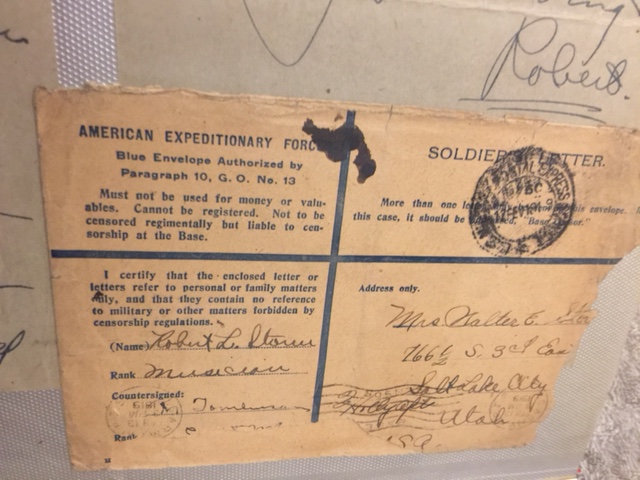 Robert.
AMERICAN EXPEDITIONARY FORC
Blue Envelope Authorized by
Paragraph 10, G. O. No. 13
Must not be used for money or valu-
ables. Cannot be registered. Not to be
censored regimentally but liable to cen-
sorship at the Base.
SOLDIER LETTER.
More than one envelope. In
this case, it should be "Base
I certify that the enclosed letter or
letters refer to personal or family matters
only, and that they contain no reference
to military or other matters forbidden by
censorship regulations.
(Name) Robert L. Storm
Rank Musician
Countersigned:
Tomlinson
Rank
Address only.
Mrs Walter E.
766½ S. 3rd East
Salt Lake City
Utah
USA.